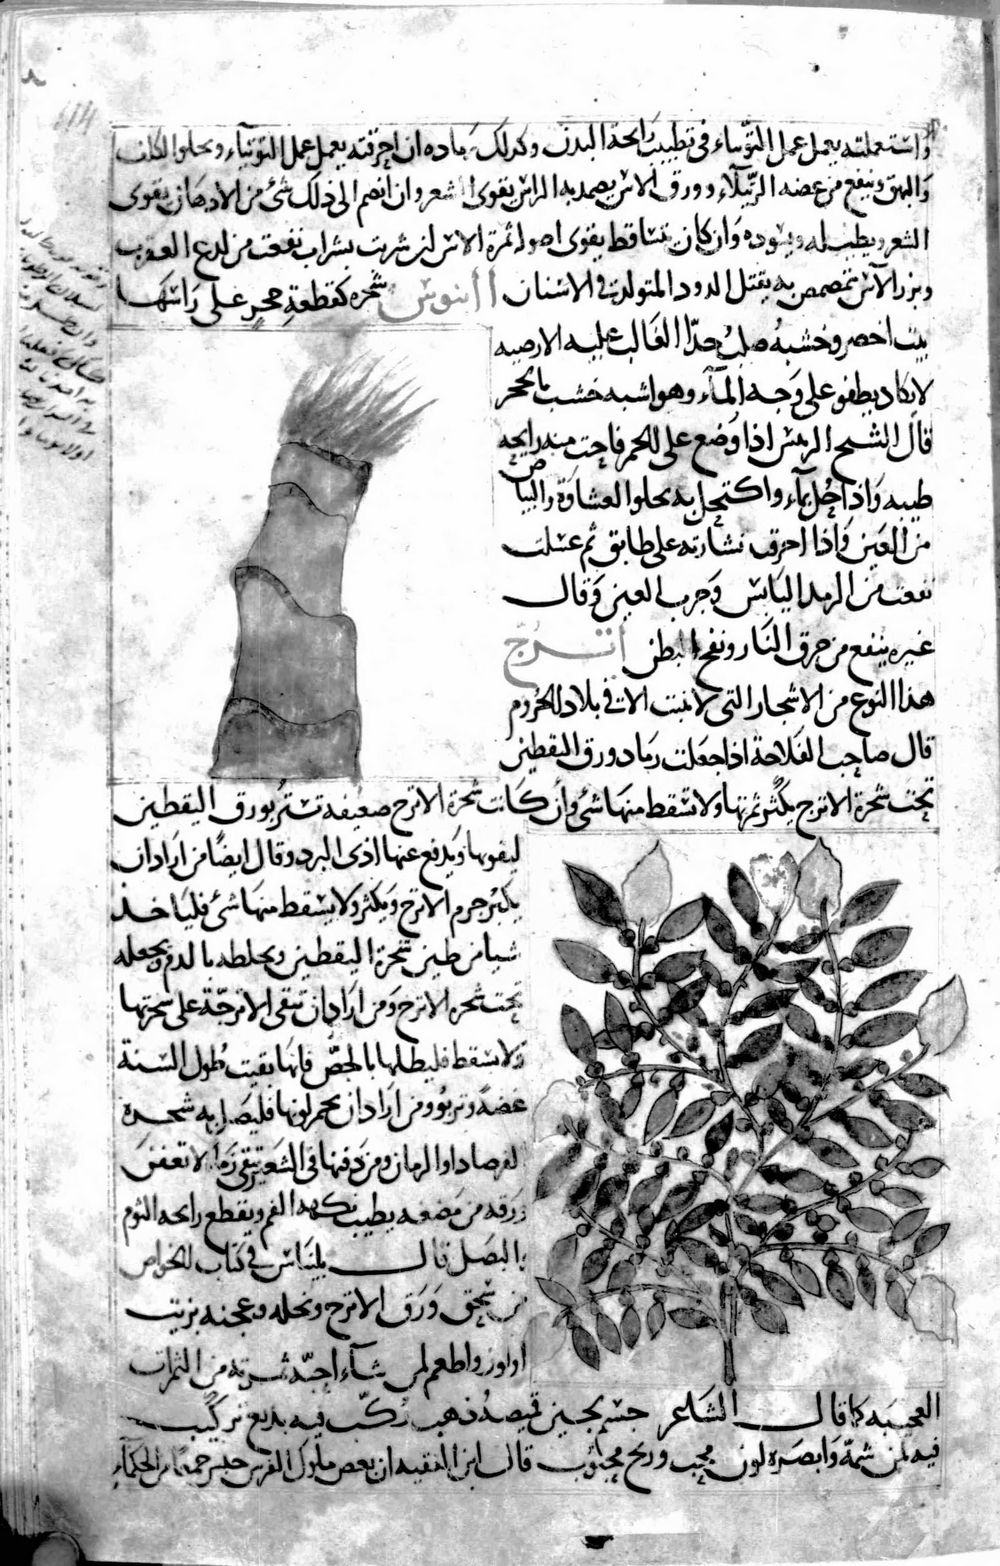 واستعملته يعمل عمل التوتياء فى تطييب رائحة البدن وكذلك رماده ان احرقته يعمل عمل التوتياء ويجلوا الكلف
والبهق وينفع من عضه الرتيلاء وورق الاس يضمد به الراس يقوى الشعر وان انضم الى ذلك شئ من الادهان يقوى
الشعر ويطيب له ويسوده وان كان يتساقط يقوى اصوله ثمرة الاس لمن شربت بشراب نفعت من لدع العقرب
وبزر الآس تمضمض به يقتل الدود المتولدة فى الاسنان آبنوس شجره كقطعة حجر على راسها
نبت اخضر وخشبه صلب جدا الغالب عليه الارضيه
لا يكاد يطفو على وجه المآء وهو اشبه خشب بالحجر
قال الشيخ الرئيس اذا وضع على الجمر فاحت منه رائحه
طيبه واذا حل بمآء واكتحل به يجلوا الغشاوة والبياض
من العين واذا احرقت نشارته على طابق ثم غسلت
نفعت من الرمد اليابس وجرب العين وقال
غيره ينفع من حرق النار ونفخ البطن اترج
هذا النوع من الاشجار التى لا تنبت الا فى بلاد الحروم
قال صاحب الفلاحة اذا جعلت رماد ورق اليقطين
تحت شجرة الاترج يكثر ثمرتها ولا تسقط منها شئ وان كانت شجرة الاترج ضعيفه تستر بورق اليقطين
ليقويها ويدفع عنها اذى البرد وقال ايضا من اراد ان
يكبر جرم الاترج ويكثر ولا يسقط منها شئ فلياخذ
شيا من طين شجرة اليقطين ويخلطه بالدم ويجعله
تحت شجره الاترج ومن اراد ان تبقى الاترجة على شجرتها
ولا تسقط فليطلها بالجص فانها بقيت طول السنة
غضة وتربو ومن اراد ان يحمر لونها فليصل به شجرة
الفرصاد او الرمان ومن دفنها فى الشعير تبقى زمانا لا تعفن
ورقه من مضغه يطيب نكهة الفم ويقطع رايحه الثوم
والبصل قال بليناس فى كتاب الخواص
من سحق ورق الاترج ونخله وعجنه بزيت
او لوز واطعم لمن شآء احبه ثمرته من الثمرات
العجيبه كما قال الشاعر جسم لجين قميصه ذهب ركب فيه بديع تركيب
فيه لمن شمه وابصره لون محب وريح محبوب قال ابن الفقيه ان بعض ملوك الفرس حبس جمعا من الحكمآء